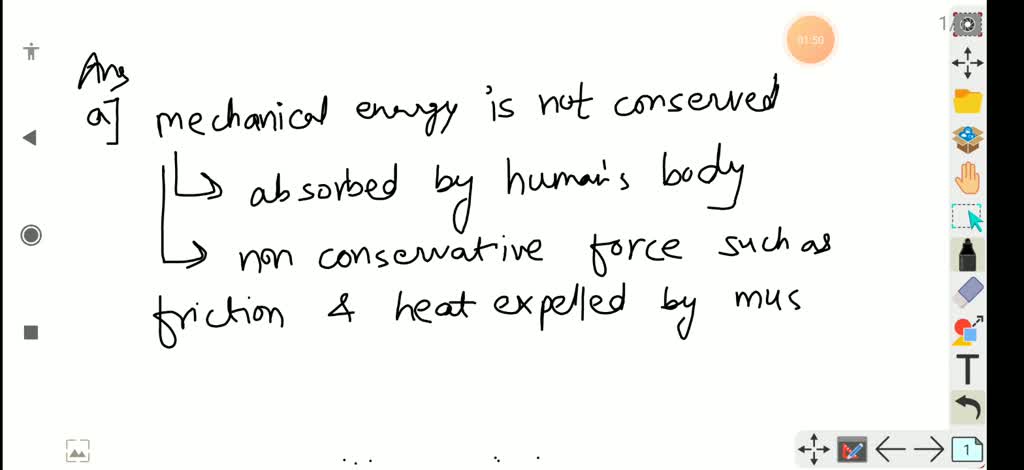 01:50
1/
Ans
a] mechanical energy is not conserved
↳ absorbed by human's body
↳ non conservative force such as
friction & heat expelled by mus
T
1